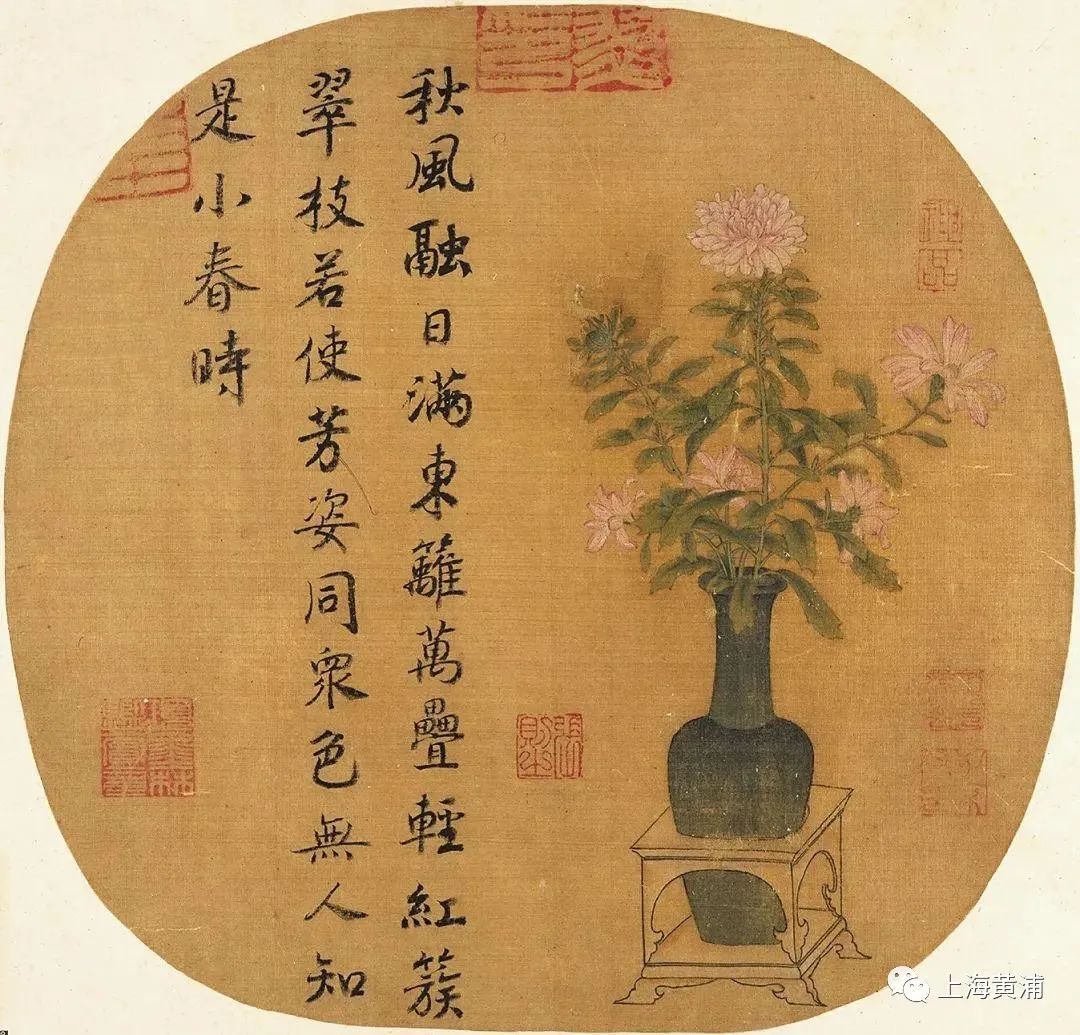 秋風融日滿東籬萬疊輕紅簇
翠枝若使芳姿同衆色無人知
是小春時
神品
張則之
上海黄浦